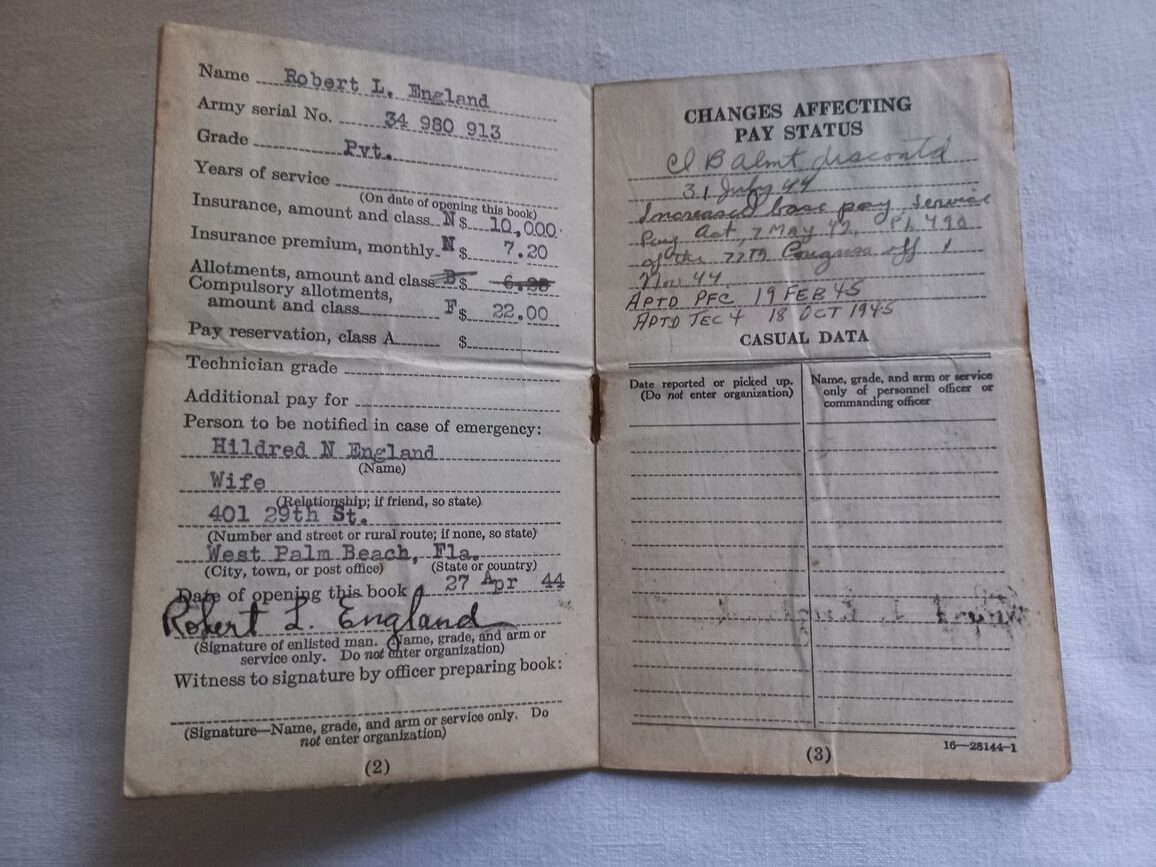 Name Robert L. England
Army serial No. 34 980 913
Grade Pvt.
Years of service
(On date of opening this book)
Insurance, amount and class N $ 10,000.
Insurance premium, monthly N $ 7.20
Allotments, amount and class B $ 6.90
Compulsory allotments,
amount and class F $ 22.00
Pay reservation, class A $
Technician grade
Additional pay for
Person to be notified in case of emergency:
Hildred N England
(Name)
Wife
(Relationship; if friend, so state)
401 29th St.
(Number and street or rural route; if none, so state)
West Palm Beach, Fla.
(City, town, or post office) (State or country)
Date of opening this book 27 Apr 44
Robert L. England
(Signature of enlisted man. Name, grade, and arm or
service only. Do not enter organization)
Witness to signature by officer preparing book:
(Signature—Name, grade, and arm or service only. Do
not enter organization)
(2)
CHANGES AFFECTING
PAY STATUS
Cl B Almt discontd
31 July 44
Increased base pay Service
Pay Act, 7 May 42, PL 490
of the 77th Congress eff 1
Nov 44
APTD PFC 19 FEB 45
APTD TEC 4 18 OCT 1945
CASUAL DATA
Date reported or picked up.
(Do not enter organization)
Name, grade, and arm or service
only of personnel officer or
commanding officer
(3)
16—28144-1